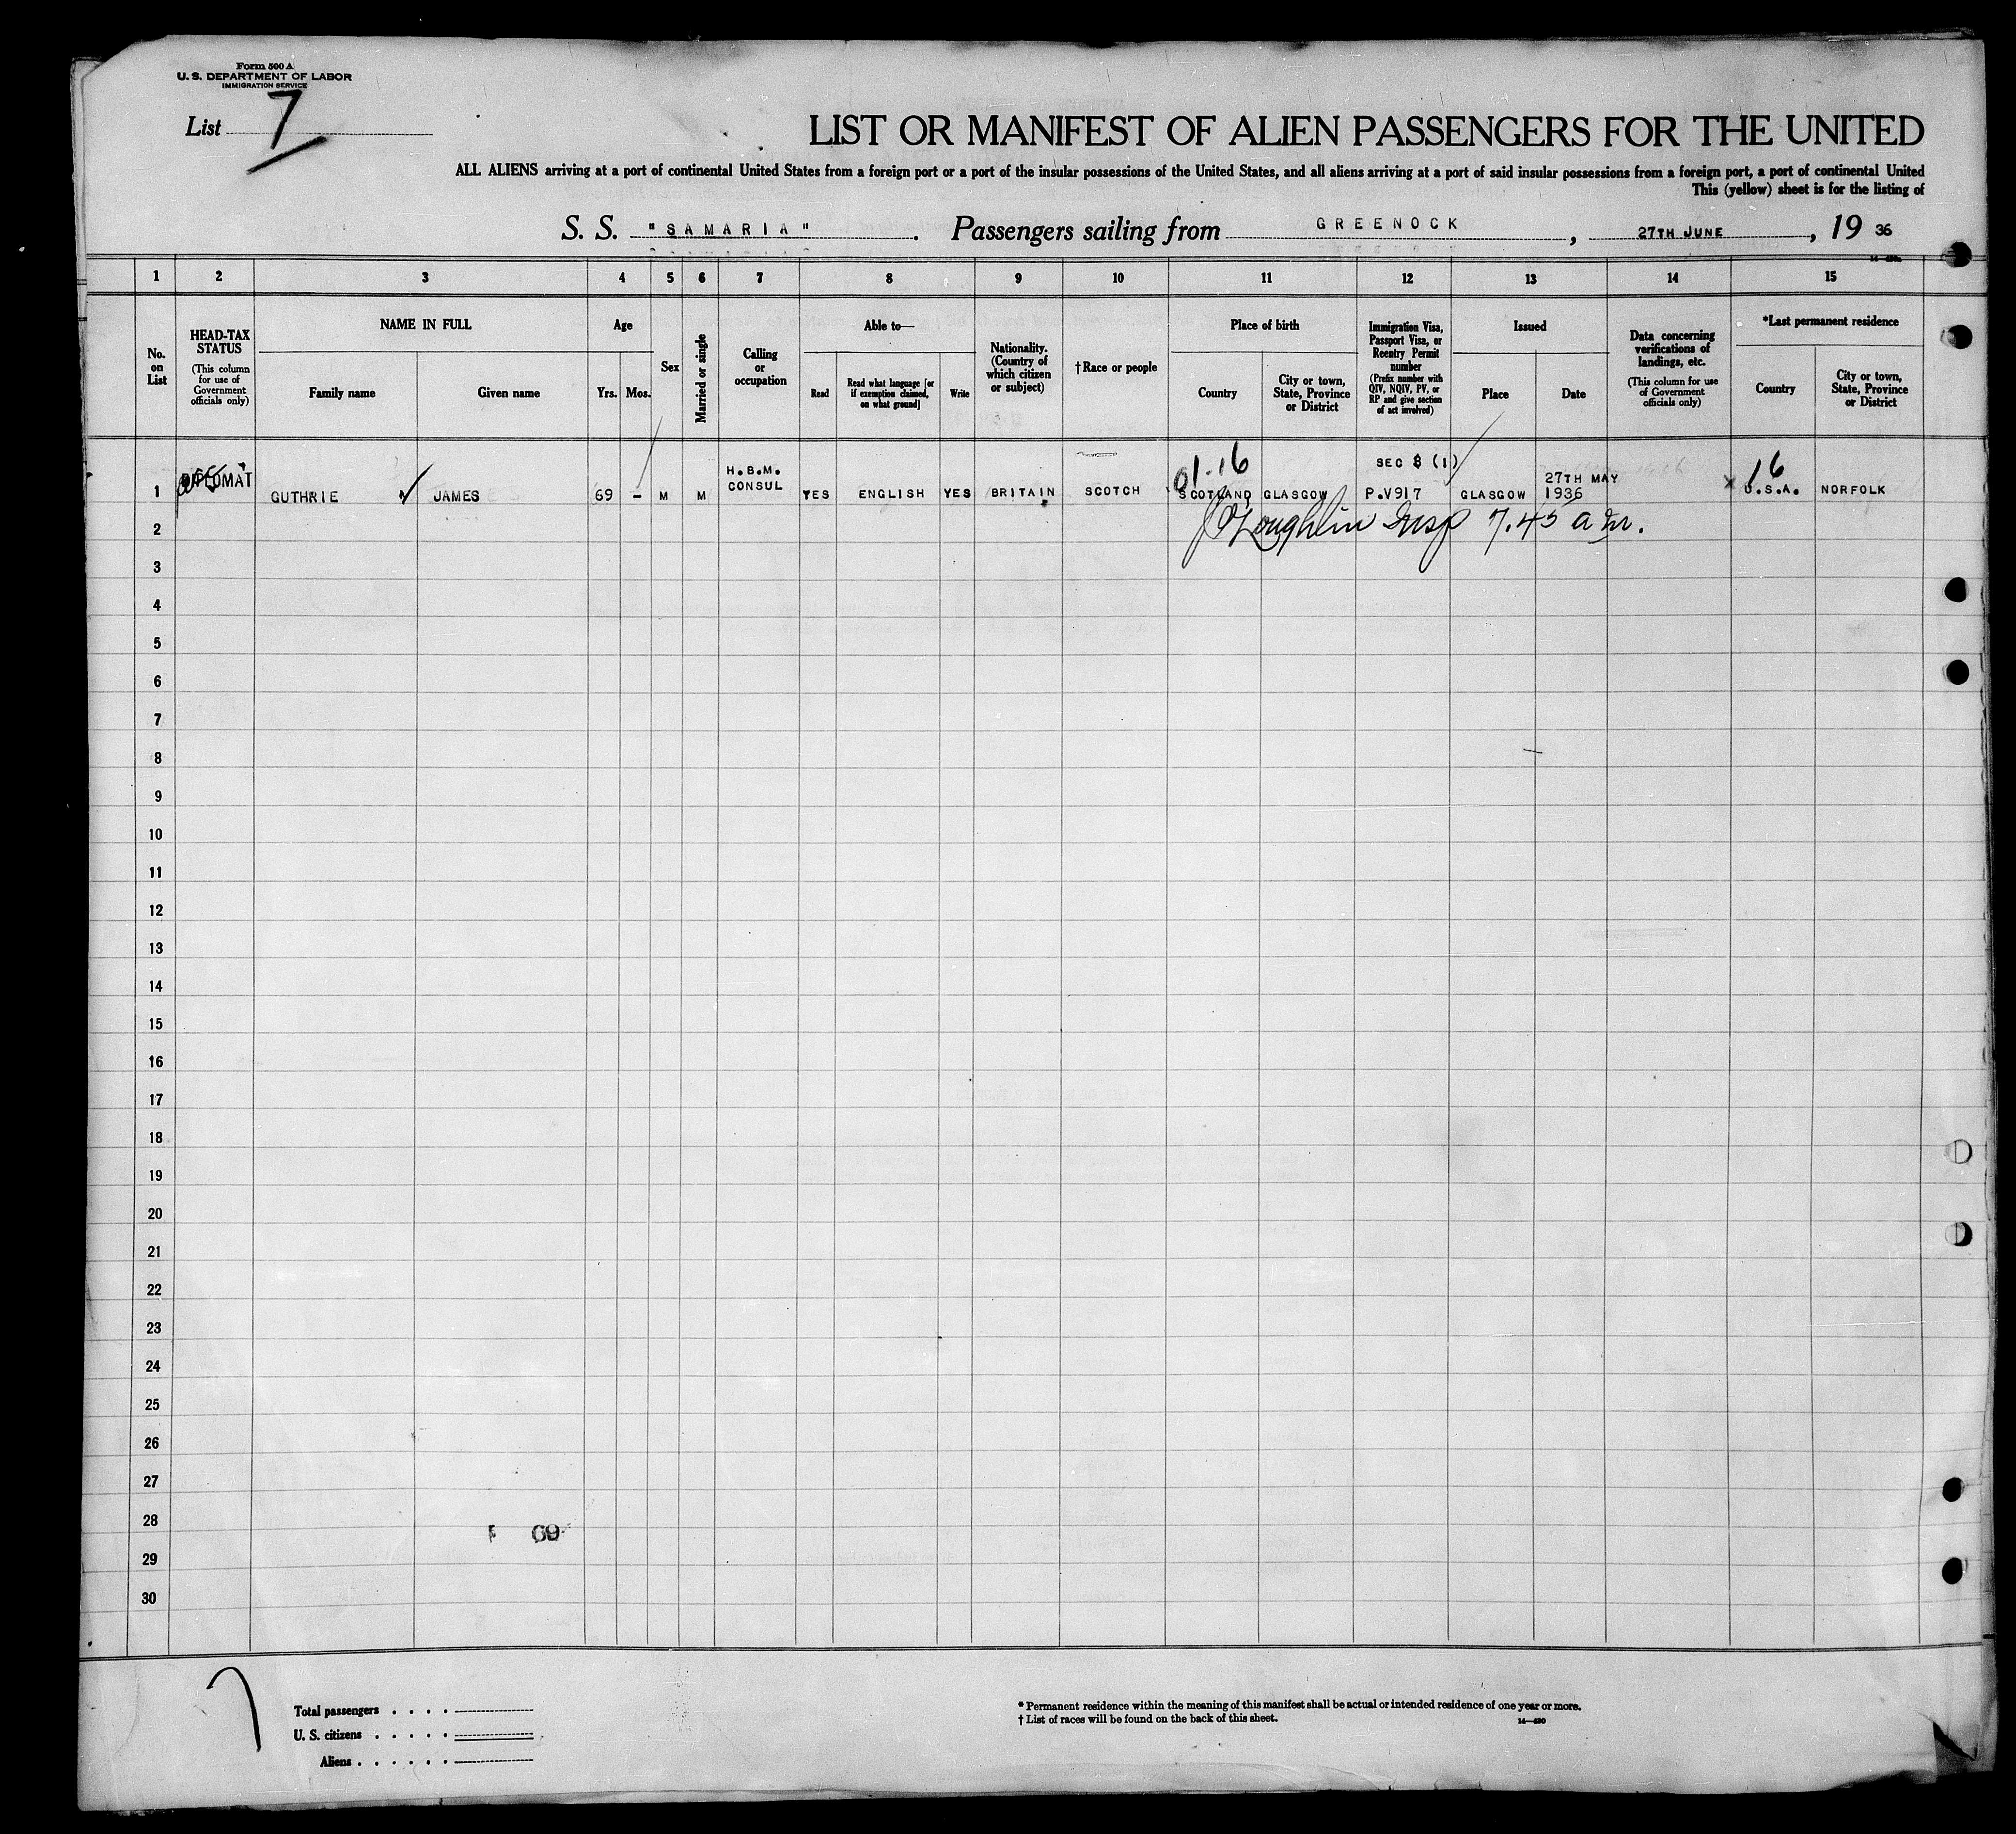 Form 500 A
U. S. DEPARTMENT OF LABOR
IMMIGRATION SERVICE
List 7
LIST OR MANIFEST OF ALIEN PASSENGERS FOR THE UNITED
ALL ALIENS arriving at a port of continental United States from a foreign port or a port of the insular possessions of the United States, and all aliens arriving at a port of said insular possessions from a foreign port, a port of continental United
This (yellow) sheet is for the listing of
S. S. "SAMARIA". Passengers sailing from GREENOCK, 27TH JUNE, 19 36
1 2 3 4 5 6 7 8 9 10 11 12 13 14 15
No. on List
HEAD-TAX STATUS
(This column for use of Government officials only)
NAME IN FULL
Family name Given name
Age
Yrs. Mos.
Sex
Married or single
Calling or occupation
Able to—
Read
Read what language [or if exemption claimed, on what ground]
Write
Nationality. (Country of which citizen or subject)
†Race or people
Place of birth
Country
City or town, State, Province or District
Immigration Visa, Passport Visa, or Reentry Permit number
(Prefix number with QIV, NQIV, PV, or RP and give section of act involved)
Issued
Place Date
Data concerning verifications of landings, etc.
(This column for use of Government officials only)
*Last permanent residence
Country
City or town, State, Province or District
01-16 SEC 3 (1) 16
1 DIPLOMAT GUTHRIE JAMES 69 - M M H.B.M. CONSUL YES ENGLISH YES BRITAIN SCOTCH SCOTLAND GLASGOW P.V917 GLASGOW 27TH MAY 1936 x U.S.A. NORFOLK
2 J O'Loughlin Insp 7.45 a.m.
3
4
5
6
7
8
9
10
11
12
13
14
15
16
17
18
19
20
21
22
23
24
25
26
27
28 69
29
30
7
Total passengers . . . .
U. S. citizens . . . . .
Aliens . . . . . .
* Permanent residence within the meaning of this manifest shall be actual or intended residence of one year or more.
† List of races will be found on the back of this sheet.
14—430